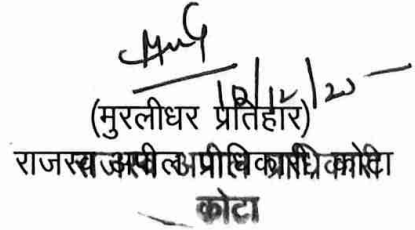 18/12/20
(मुरलीधर प्रतिहार)
राजस्व अपील प्राधिकारी, कोटा
कोटा